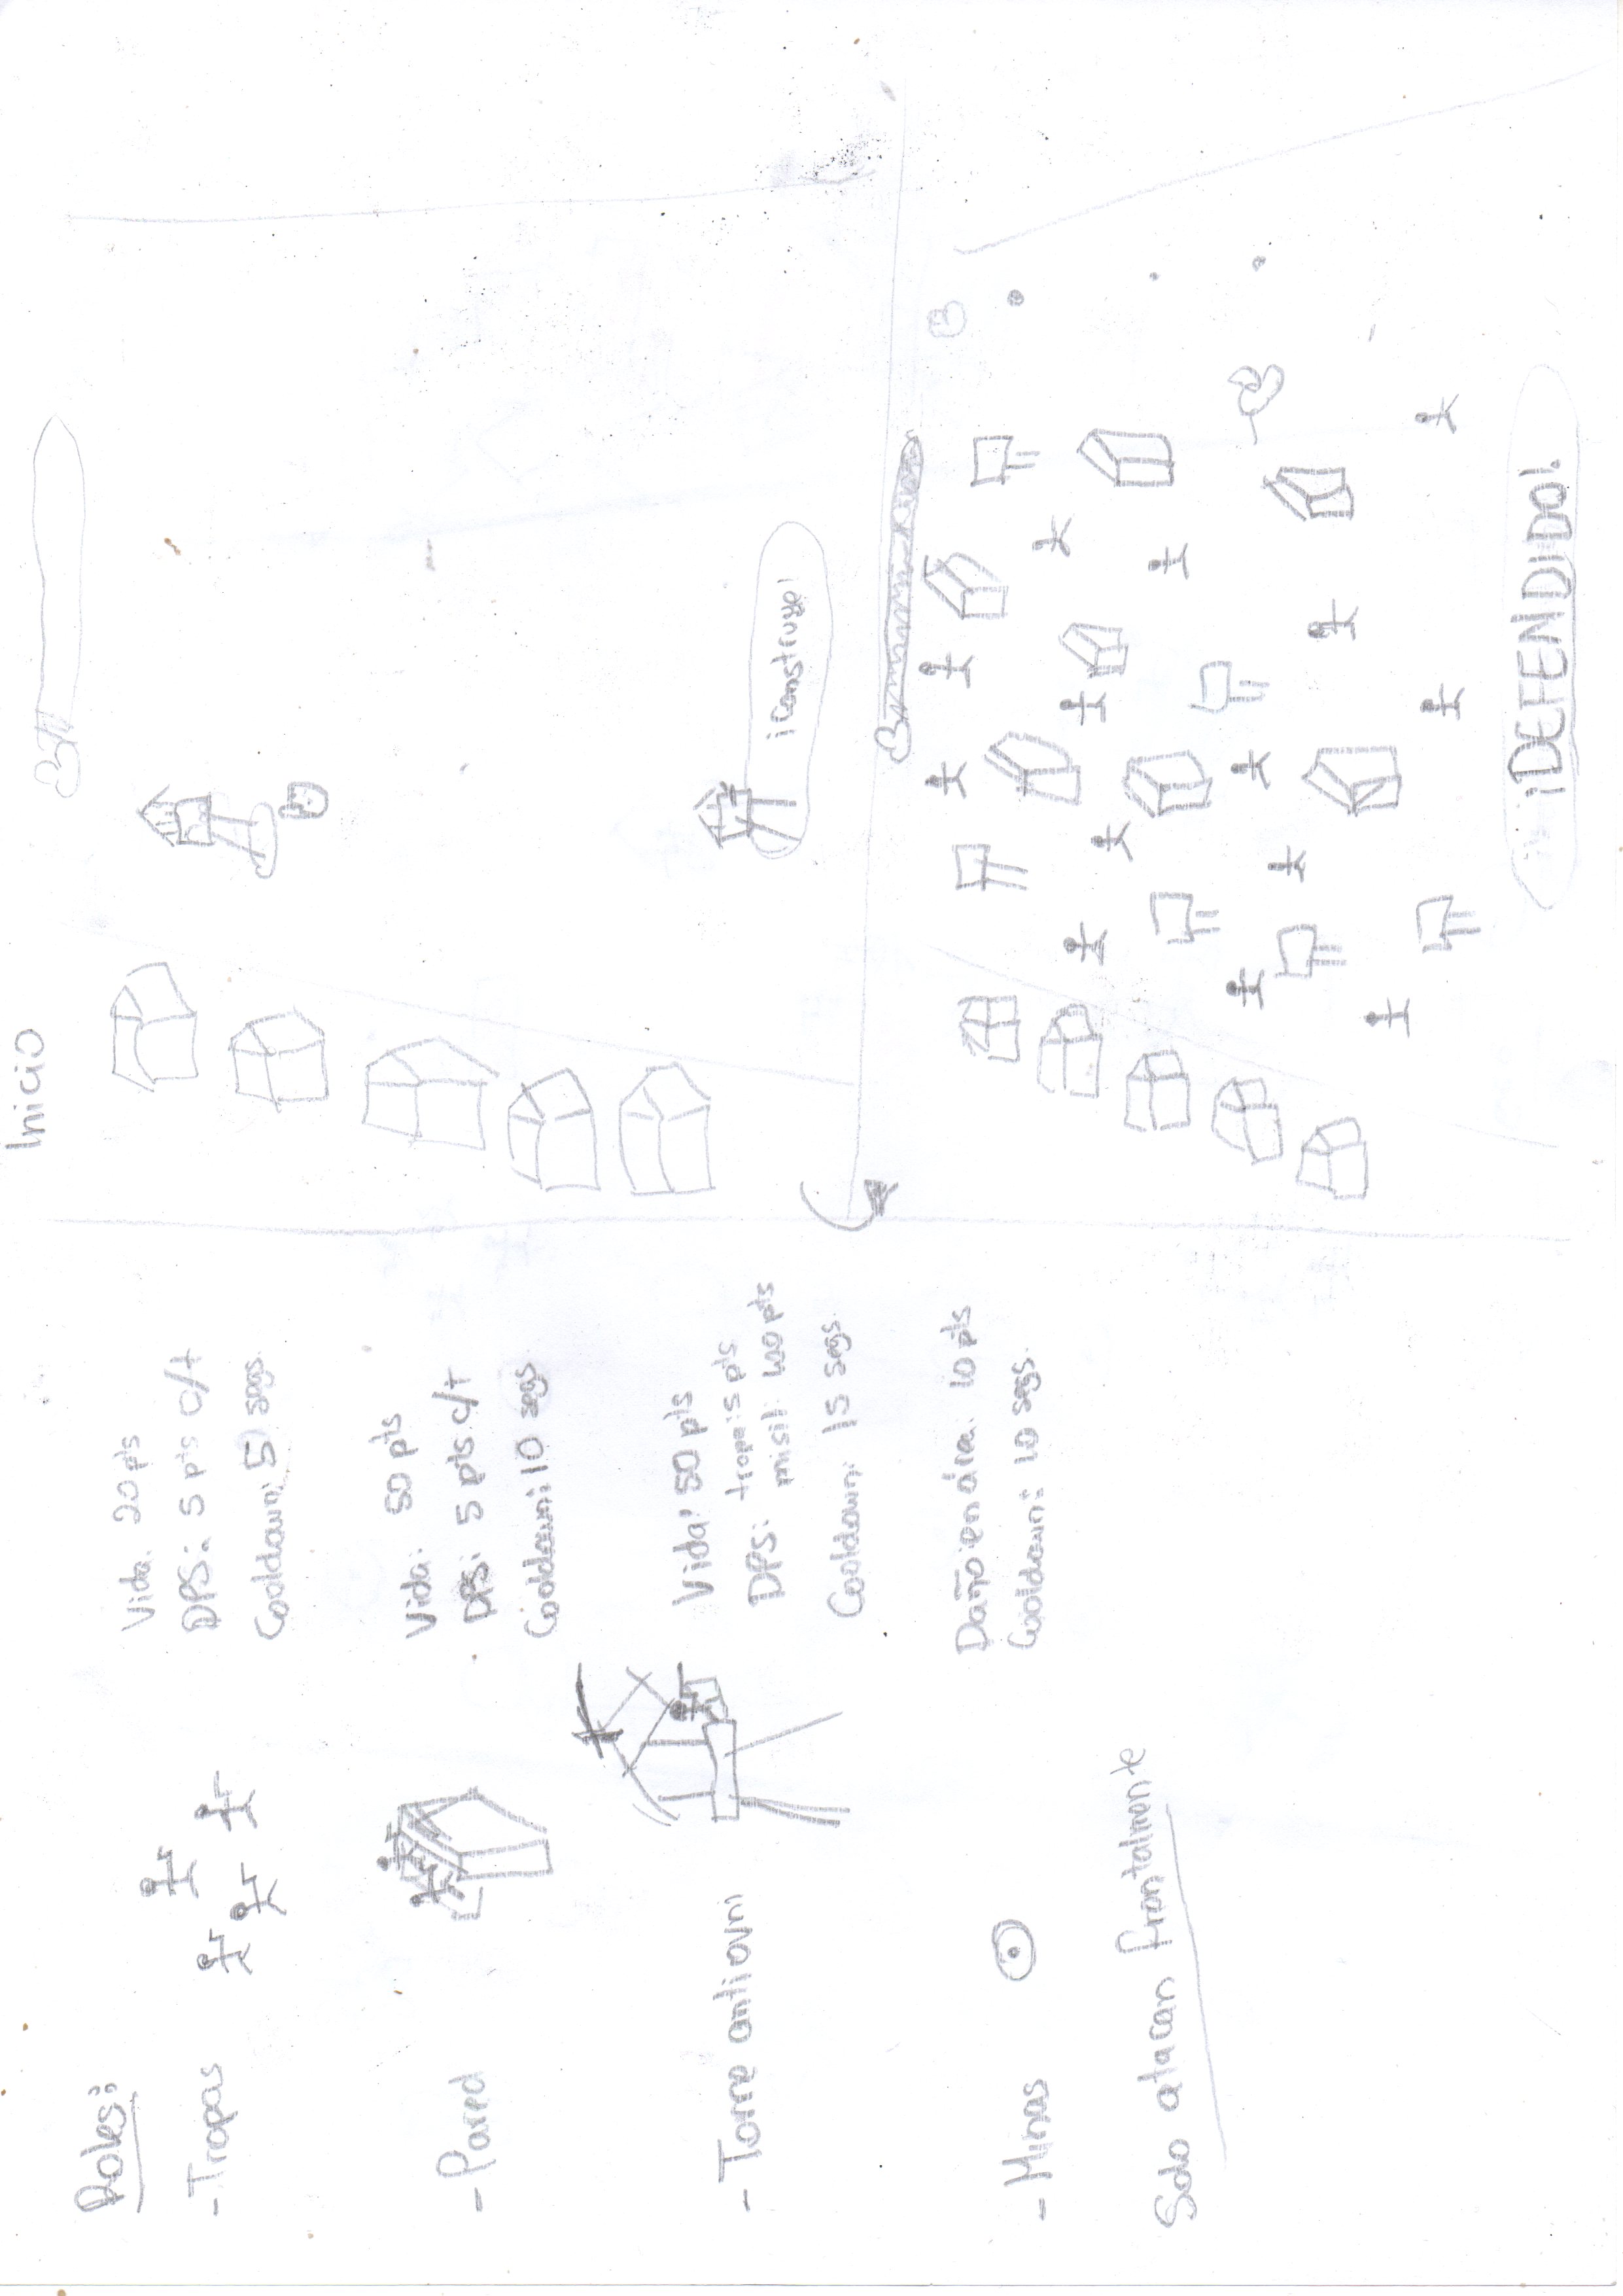 Roles:
-Tropas
Vida: 20 pts
DPS: 5 pts c/t
Cooldown: 5 segs.
-Pared
Vida: 50 pts
DPS: 5 pts c/t
Cooldown: 10 segs
-Torre antiovni
Vida: 50 pts
DPS: tropa: 5 pts
misil: 100 pts
Cooldown: 15 segs.
-Minas
Daño en área: 10 pts
Cooldown: 10 segs.
Solo atacan frontalmente
Inicio
¡Construye!
¡DEFENDIDO!